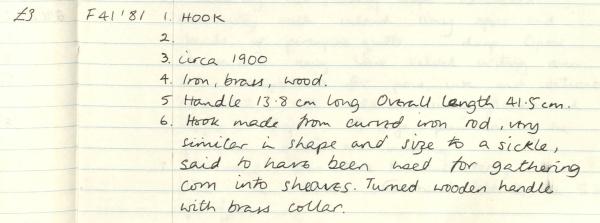 £3 F41'81 1. HOOK
2.
3. circa 1900
4. Iron, brass, wood.
5 Handle 13.8 cm long Overall length 41.5cm.
6. Hook made from curved iron rod, very
similar in shape and size to a sickle,
said to have been used for gathering
corn into sheaves. Turned wooden handle
with brass collar.